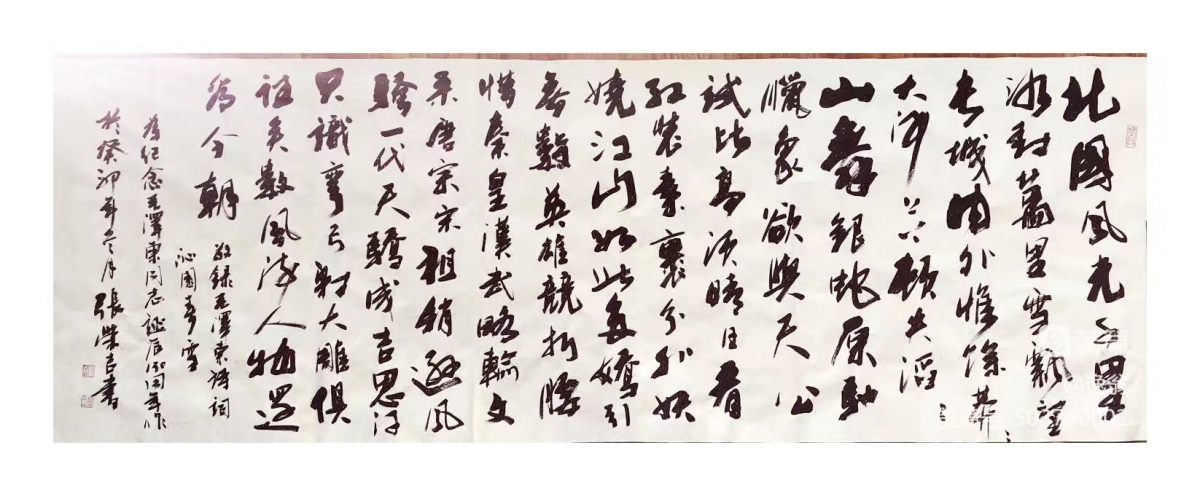 北國風光千里
冰封萬里雪飄望
長城內外惟餘莽〻
大河上下頓失滔
山舞銀蛇原馳
蠟象欲與天公
試比高須晴日看
紅裝素裹分外妖
嬈江山如此多嬌引
無數英雄競折腰
惜秦皇漢武略輸文
采唐宗宋祖稍遜風
騷一代天驕成吉思汗
只識彎弓射大雕俱
往矣數風流人物還
看今朝
敬錄毛澤東詩詞
沁園春雪
為紀念毛澤東同志誕辰周年作
於癸卯年冬月張榮吉書